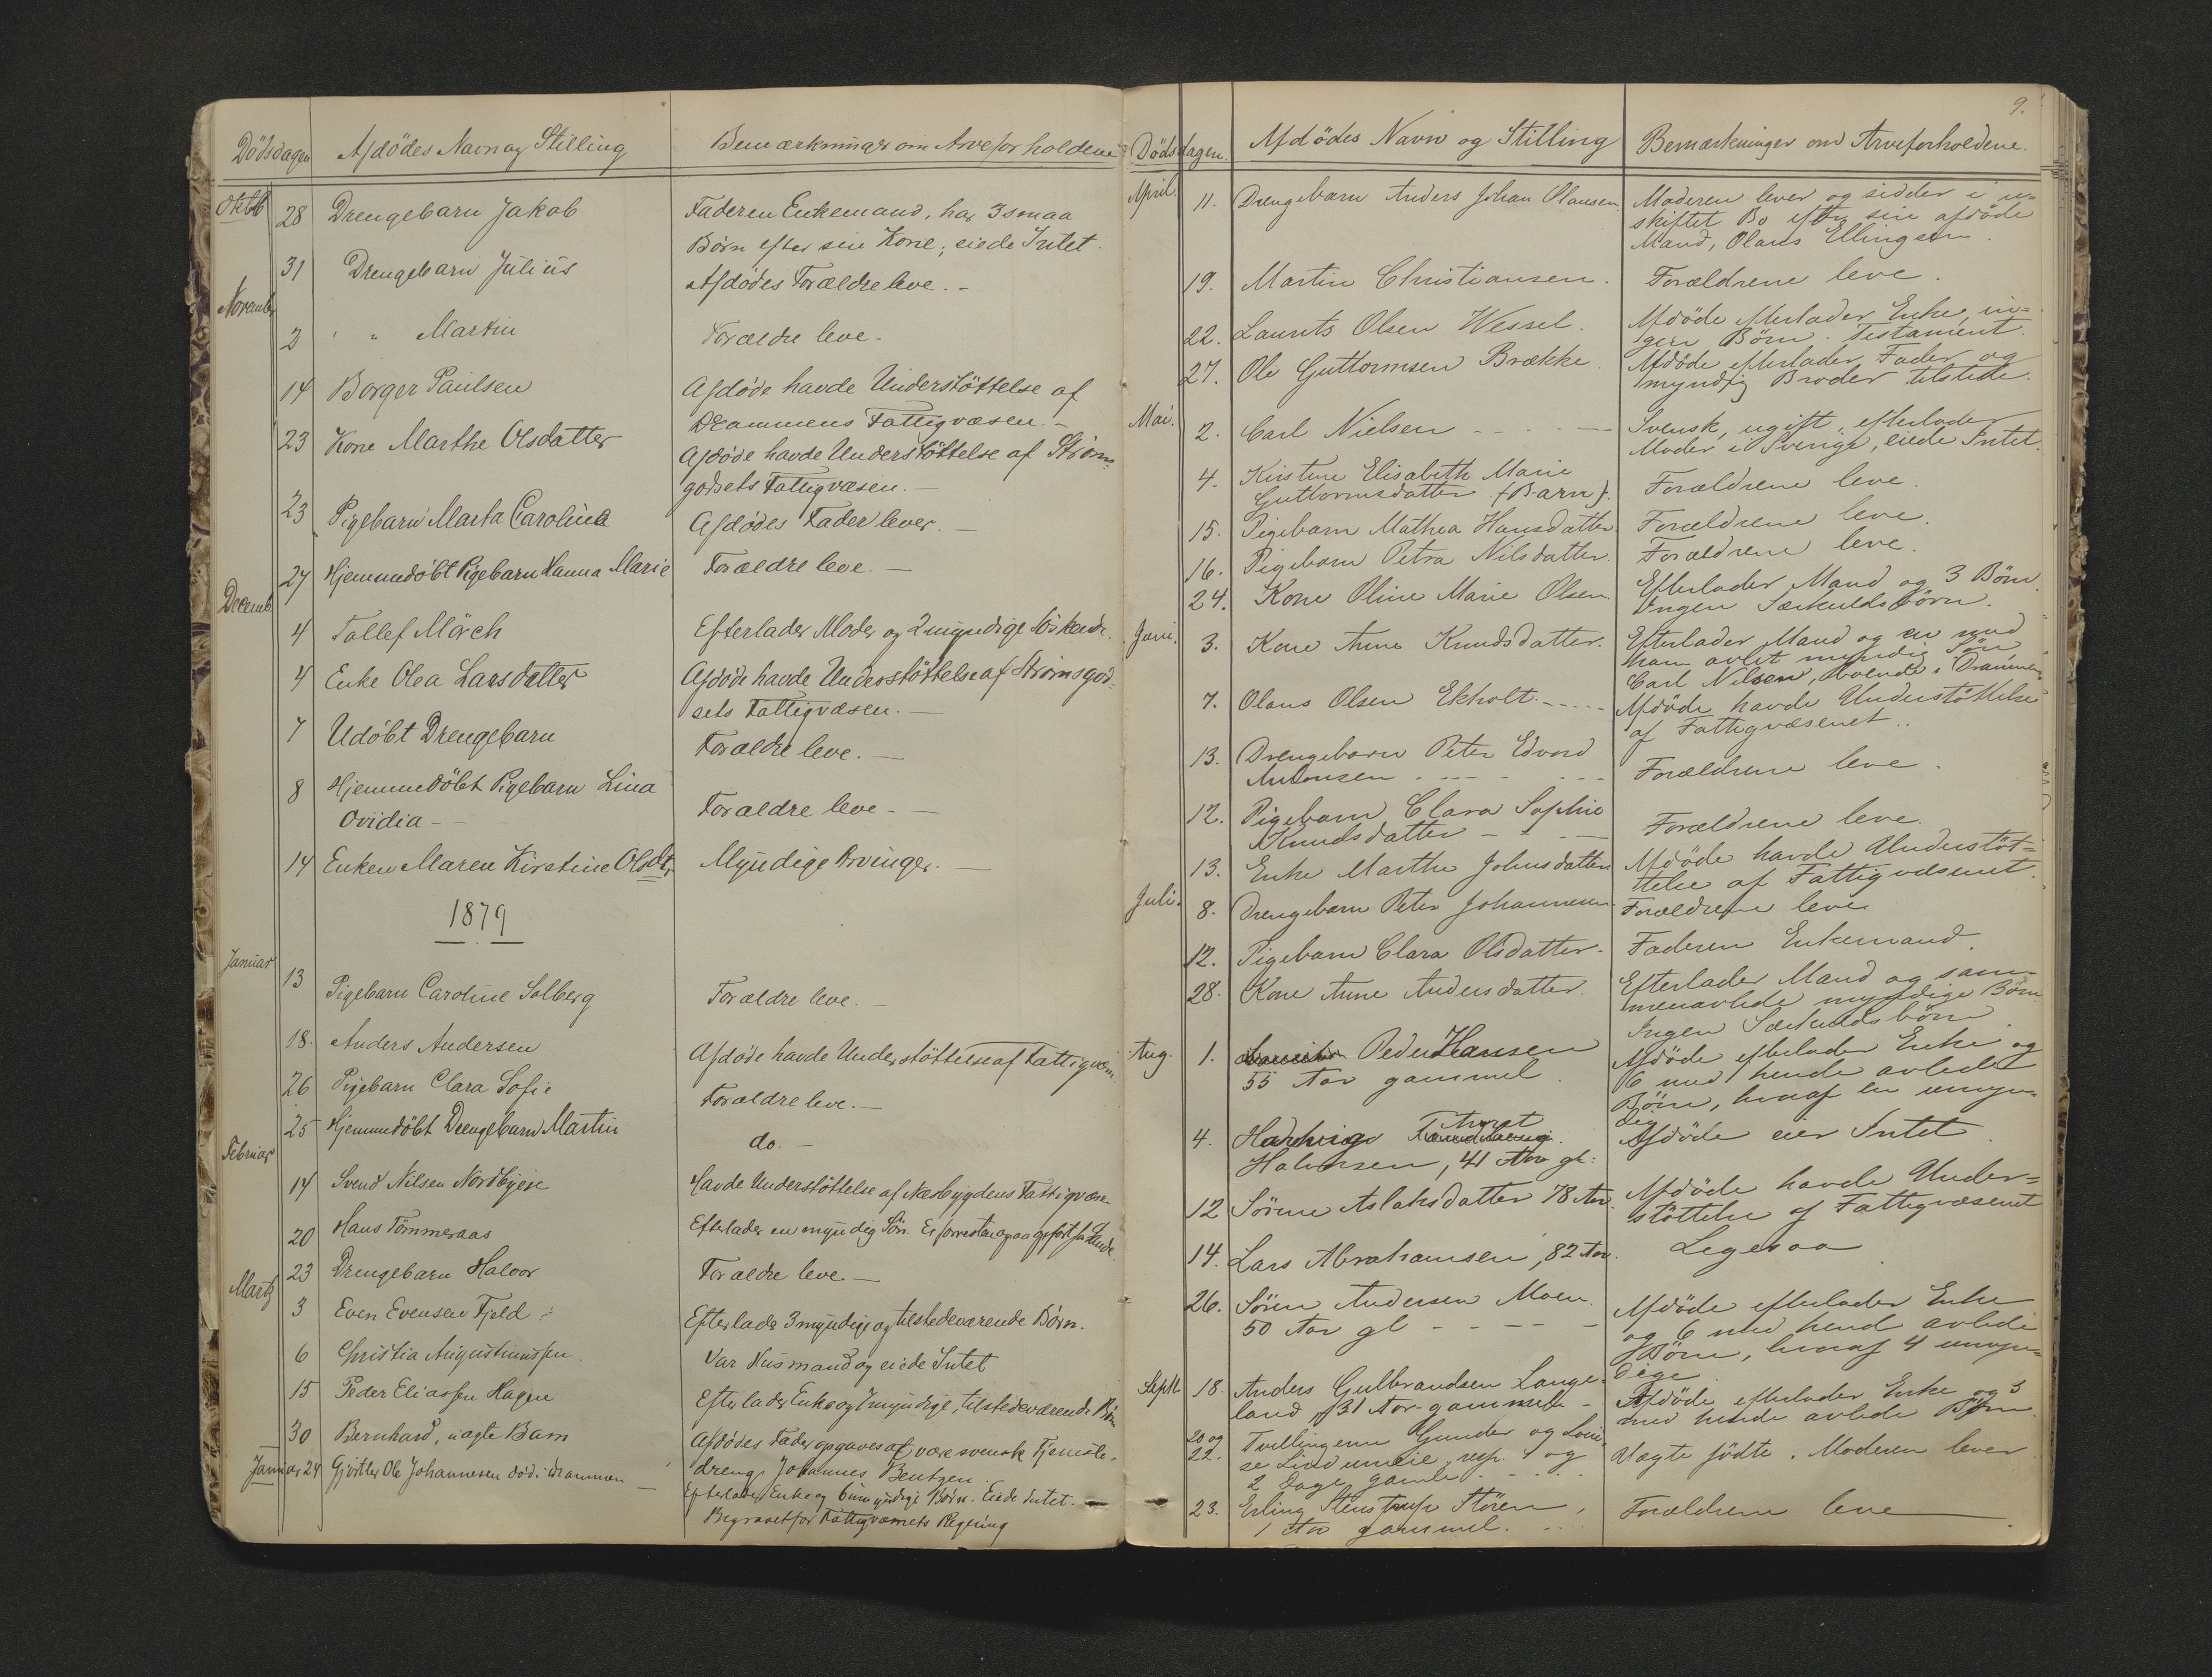 Dödsdagen Afdödes Navn og Stilling Bemærkninger om Arveforholdene
Oktob 28 Drengebarn Jakob Faderen Enkemand, har 3 smaa
Börn efter sin Kone; eiede Intet.
31 Drengebarn Julius Afdödes Forældre leve. -
Novemb
2 " " Martin Forældre leve -
14 Borger Paulsen Afdöde havde Understöttelse af
Drammens Fattigvæsen. -
23 Kone Marthe Olsdatter Afdöde havde Understöttelse af Ströms-
godsets Fattigvæsen. -
23 Pigebarn Marta Carolina Afdödes Fader lever. -
27 Hjemmedöbt Pigebarn Hanna Marie Forældre leve. -
Decemb
4 Tollef Mörch Efterlader Moder og 2 myndige Söskende.
4 Enke Olea Larsdatter Afdöde havde Understöttelse af Strömsgod=
sets Fattigvæsen. -
7 Udöbt Drengebarn Forældre leve. -
8 Hjemmedöbt Pigebarn Lina
Ovidia - - Forældre leve. -
14 Enken Maren Kirstine Olsdtr Myndige Arvinger. -
1879
Januar
13 Pigebarn Caroline Solberg Forældre leve. -
18. Anders Andersen Afdöde havde Understöttelse af Fattigvæs.
26 Pigebarn Clara Sofie Forældre leve. -
25 Hjemmedöbt Drengebarn Martin do. -
Februar
14 Svend Nilsen Nordbyeie Havde Understöttelse af Næsbygdens Fattigvæsen
20 Hans Tömmeraas Efterlader en myndig Sön.
23 Drengebarn Halvor Forældre leve. -
Marts
3 Even Evensen Fjeld Efterlader 3 myndige og tilstedeværende Börn.
6 Christia Augustinussen Var Husmand og eiede Intet
15 Peder Eliassen Hagen Efterlader Enke og 7 myndige, tilstedeværende Börn
30 Bernhard, uægte Barn Afdödes Fader opgaves at være svensk Tjeneste-
dreng Johannes Bentzen.
Januar 24 Gjörtler Ole Johannesen död i Drammen Efterlader Enke og 6 umyndige Börn. Eiede Intet. -
Begravet for Fattigvæsnets Regning
9.
Dödsdagen. Afdödes Navn og Stilling Bemærkninger om Arveforholdene.
April. 11. Drengebarn Anders Johan Olausen Moderen lever og sidder i u=
skiftet Bo efter sin afdöde
Mand, Olaus Ellingsen.
19. Martin Christiansen. Forældrene leve.
22. Laurits Olsen Wessel. Afdöde efterlader Enke, in=
gen Börn. Testament.
27. Ole Guttormsen Brække. Afdöde efterlader Fader og
myndig Broder tilstede.
Mai. 2. Carl Nielsen - - - - Svensk, ugift, efterlader
Moder i Sverige, eiede Intet.
4. Kirstine Elisabeth Marie
Guttormsdatter (Barn). Forældrene leve.
15. Pigebarn Mathea Hansdatter Forældrene leve.
16. Pigebarn Petra Nilsdatter. Forældrene leve.
24. Kone Oline Marie Olsen. Efterlader Mand og 3 Börn.
Ingen Særkuldsbörn.
Juni. 3. Kone Anne Knudsdatter. Efterlader Mand og en med
ham avlet myndig Sön
Carl Nilsen, boende i Drammen
7. Olaus Olsen Ekholt. - - - - Afdöde havde Understöttelse
af Fattigvæsenet.
13. Drengebarn Peter Edvard
Antonsen - - - - Forældrene leve.
12. Pigebarn Clara Sophie
Knudsdatter - - - Forældrene leve.
13. Enke Marthe Johnsdatter Afdöde havde Understöt=
telse af Fattigvæsenet.
Juli. 8. Drengebarn Peter Johannesen Forældrene leve
12. Pigebarn Clara Olsdatter. Faderen Enkemand.
28. Kone Anne Andersdatter. Efterlader Mand og sam-
menavlede myndige Börn
Ingen Særkuldsbörn.
Aug. 1. Peder Hansen
55 Aar gammel. Afdöde efterlader Enke og
6 med hende avlede
Börn, hvoraf en umyn-
dig
4. Hardvig
Halvorsen, 41 Aar gl. Afdöde eier Intet.
12 Sörine Aslaksdatter 78 Aar. Afdöde havde Under=
stöttelse af Fattigvæsenet
14. Lars Abrahamsen, 82 Aar. Ligesaa
26. Sören Andersen Moen
50 Aar gl - - - - Afdöde efterlader Enke
og 6 med hend avlede
Börn, hvoraf 4 umyn=
dige
Septb 18. Anders Gulbrandsen Lange-
land, 31 Aar gammel - Afdöde efterlader Enke og 3
med hende avlede Börn
20 og
22. Tvillingerne Gunder og Loui-
se Lindumeie, resp. 1 og
2 Dage gamle. - - Uægte födte. Moderen lever
23. Erling Stenstrup Stören,
1 Aar gammel. Forældrene leve